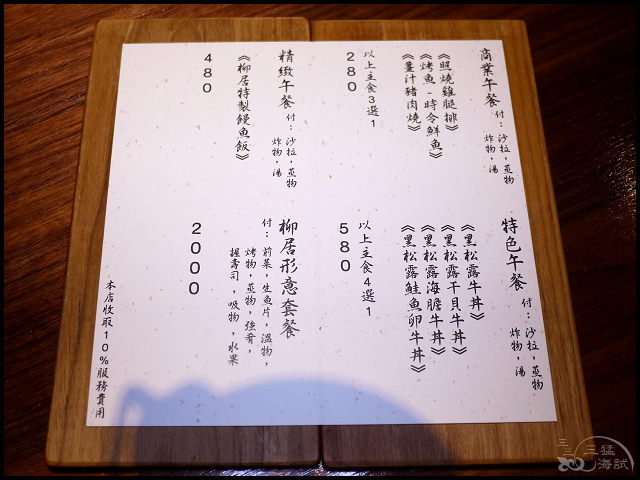 商業午餐
付：沙拉，蒸物
炸物，湯
《照燒雞腿排》
《烤魚-時令鮮魚》
《薑汁豬肉燒》
以上主食3選1
280
精緻午餐
付：沙拉，蒸物
炸物，湯
《柳居特製饅魚飯》
480
特色午餐
付：沙拉，蒸物
炸物，湯
《黑松露牛丼》
《黑松露干貝牛丼》
《黑松露海膽牛丼》
《黑松露鮭魚卵牛丼》
以上主食4選1
580
柳居形意套餐
付：前菜，生魚片，溫物，
烤物，蒸物，強肴，
握壽司，吸物，水果
2000
本店收取10%服務費用
三猛
海試